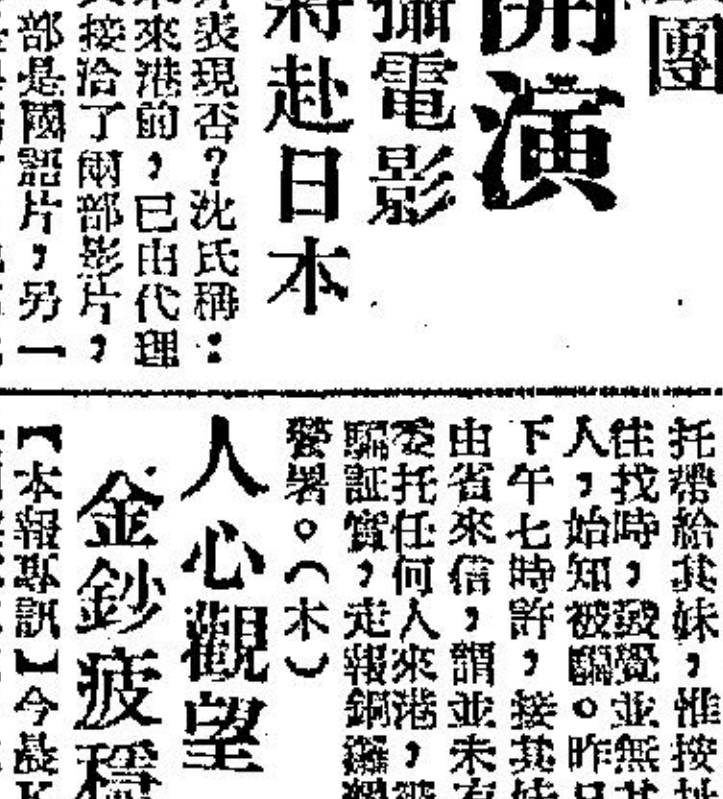 團
開演
攝電影
將赴日本
表現否？沈氏稱：
來港前，已由代理
接洽了兩部影片，
部是國語片，另一
托帶給其妹，惟按址
往找時，發覺並無其
人，始知被騙。昨日
下午七時許，接其妹
由省來信，謂並未有
委托任何人來港，被
騙証實，走報銅鑼
警署。（木）
人心觀望
金鈔疲穩
【本報專訊】今晨